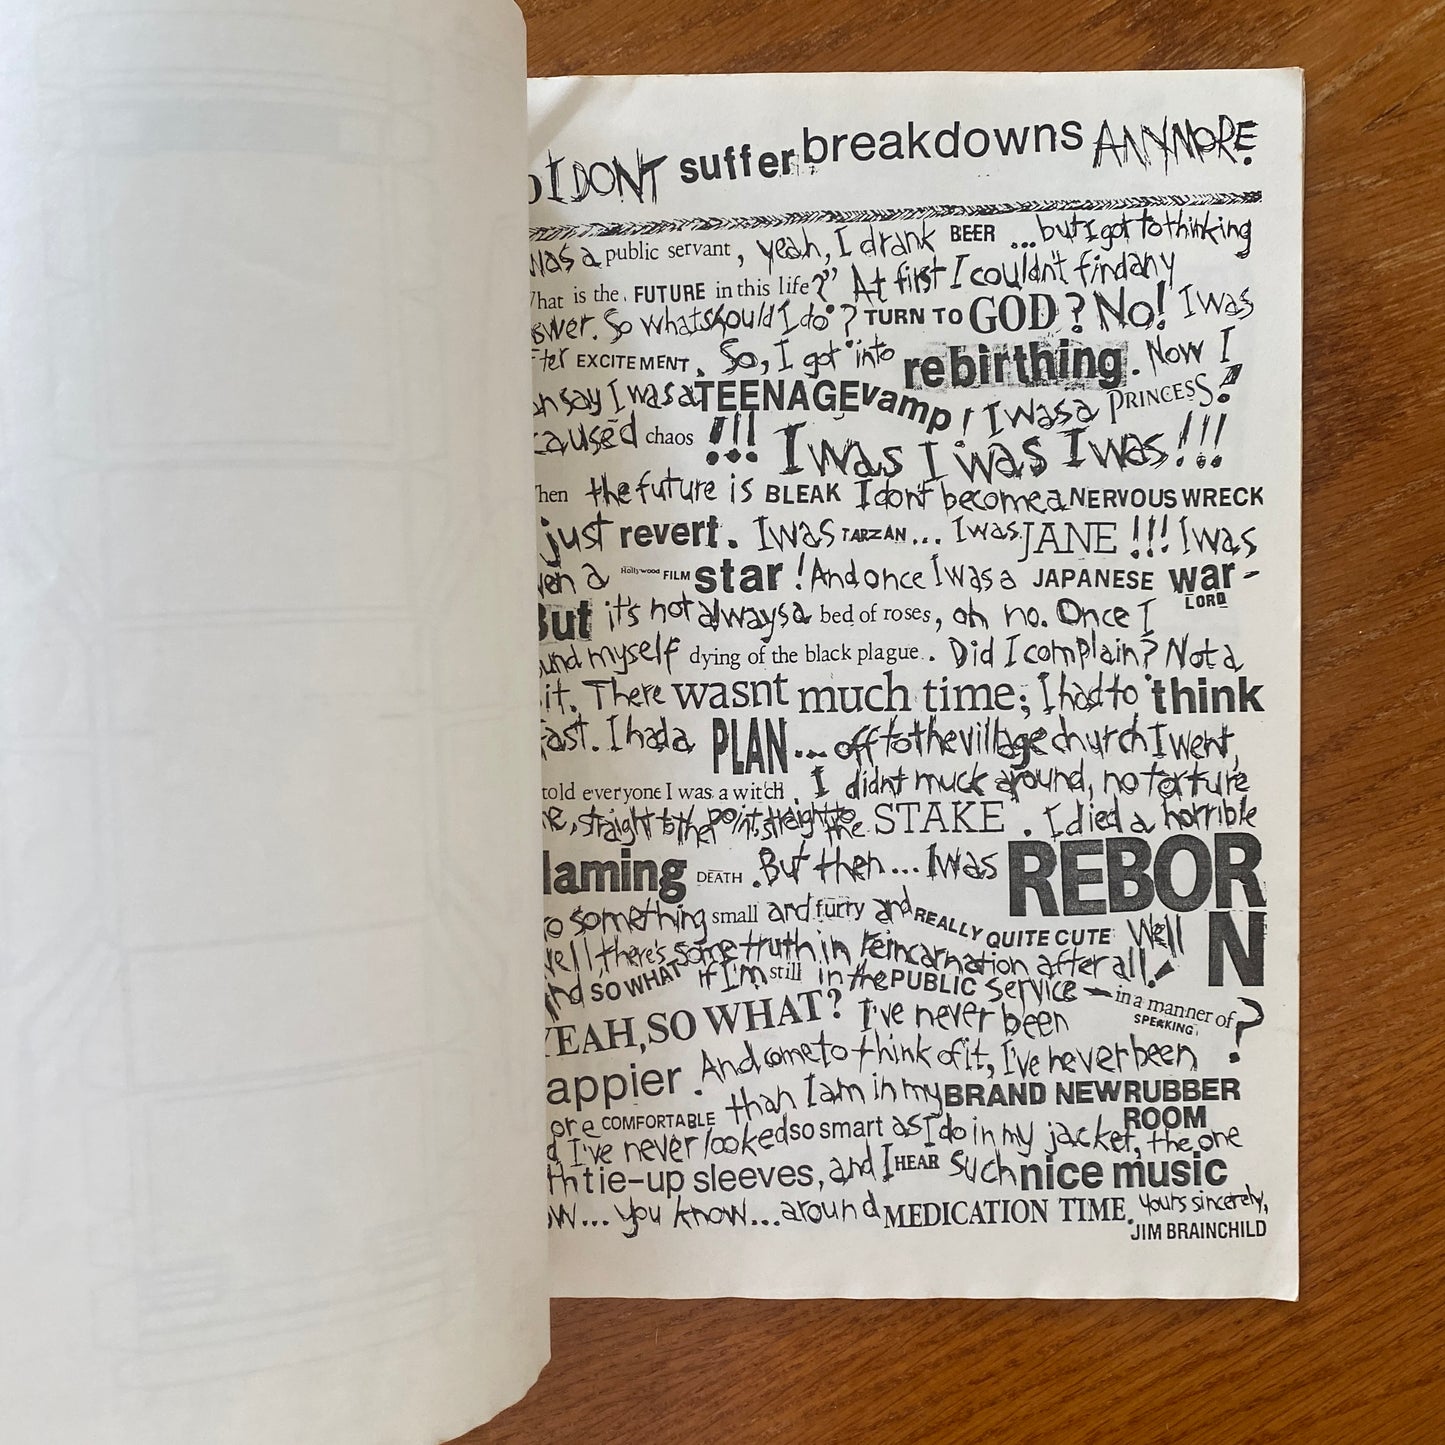 I DONT suffer breakdowns ANYMORE.
was a public servant, yeah, I drank BEER ... but I got to thinking
What is the FUTURE in this life?" At first I couldn't find any
swer. So what should I do? TURN TO GOD? No! I was
fter EXCITEMENT. So, I got into rebirthing. Now I
an say I was a TEENAGE vamp! I was a PRINCESS!
caused chaos !!! I was I was I was!!!
hen the future is BLEAK I dont become a NERVOUS WRECK
just revert. I was TARZAN... I was JANE !!! I was
ven a Hollywood FILM star! And once I was a JAPANESE war-
LORD
But it's not always a bed of roses, oh no. Once I
und myself dying of the black plague. Did I complain? Not a
it. There wasnt much time; I had to think
fast. I had a PLAN... off to the village church I went,
told everyone I was a witch. I didnt muck around, no torture
me, straight to the point, straight to the STAKE. I died a horrible
laming DEATH. But then... I was REBOR
N
to something small and furry and REALLY QUITE CUTE Well
well, there's some truth in reincarnation after all!
And SO WHAT if I'm still in the PUBLIC Service - in a manner of
SPEAKING?
YEAH, SO WHAT? I've never been
appier. And come to think of it, I've never been
ore COMFORTABLE than I am in my BRAND NEW RUBBER
ROOM
d I've never looked so smart as I do in my jacket, the one
th tie-up sleeves, and I HEAR such nice music
ow... you know... around MEDICATION TIME. Yours sincerely,
JIM BRAINCHILD